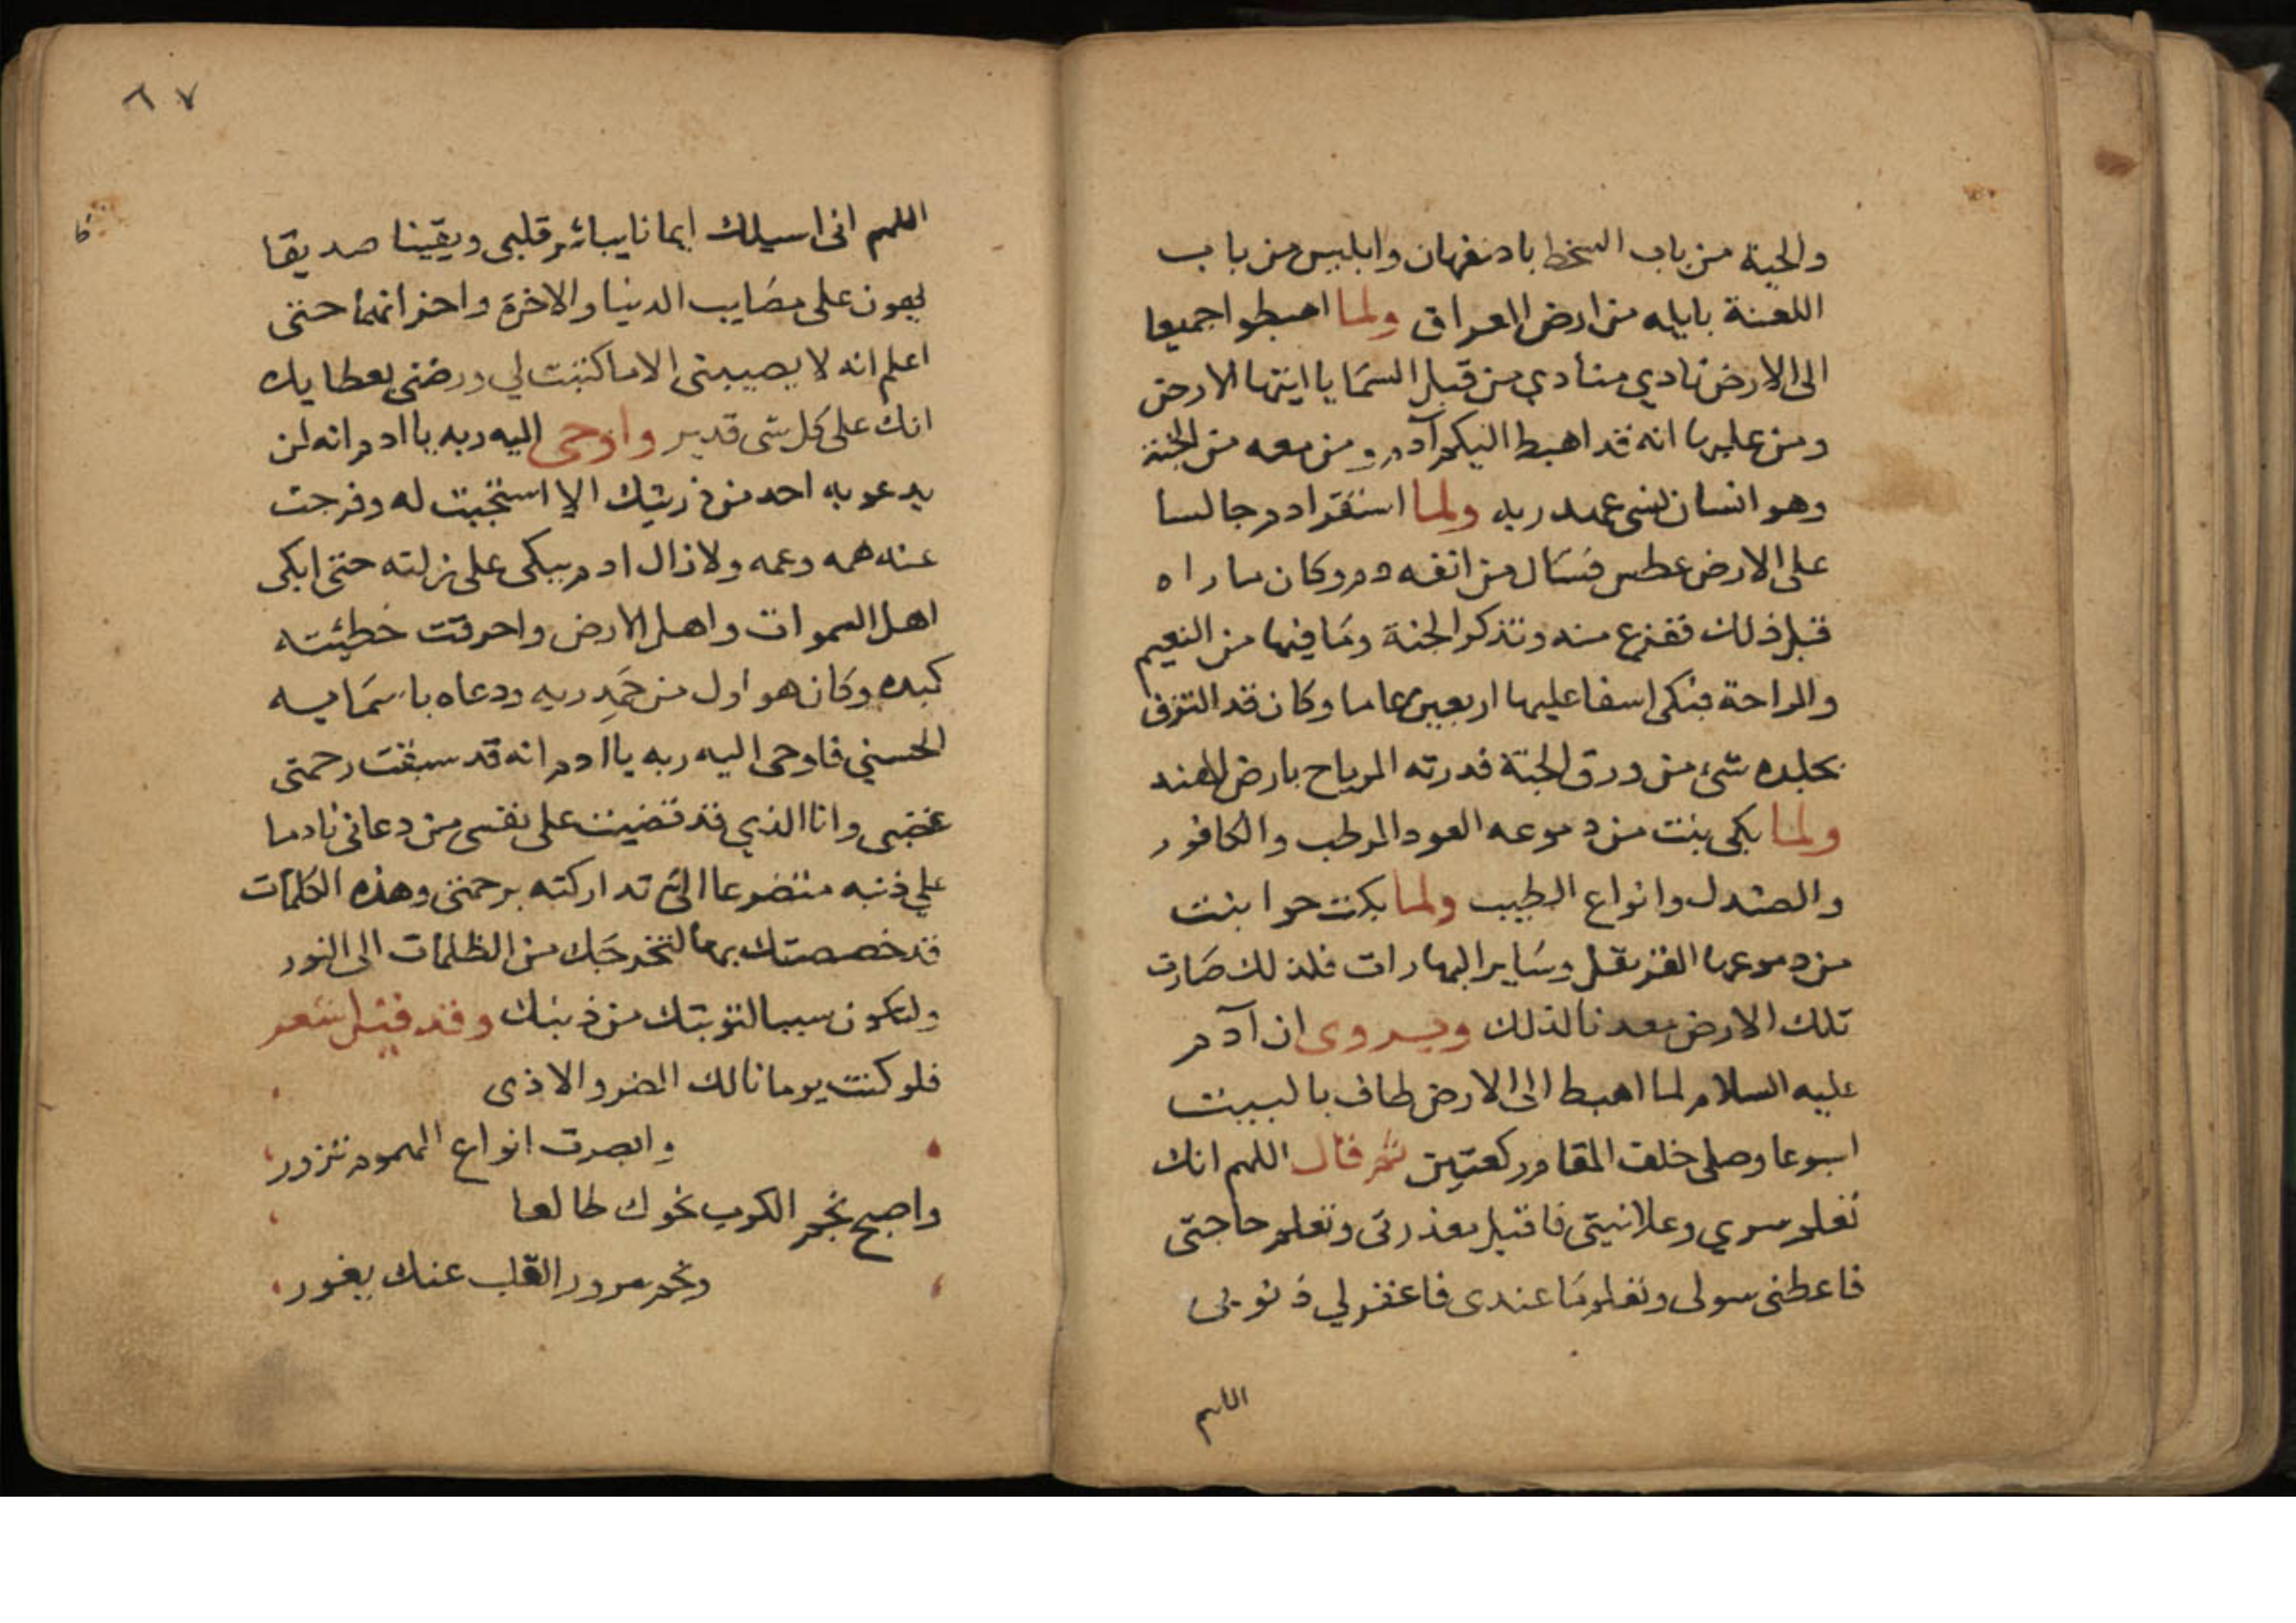 والحية من باب السخط باصفهان وابليس من باب
اللعنة بايله من ارض العراق ولما اهبطوا جميعا
الى الارض نادي منادي من قبل السما يا ايتها الارض
ومن عليها انه قد اهبط اليكم آدم ومن معه من الجنة
وهو انسان نسى عهد ربه ولما استقر ادم جالسا
على الارض عطس فسال من انفه دم وكان ما راه
قبل ذلك ففزع منه وتذكر الجنة وما فيها من النعيم
والراحة فبكى اسفا عليها اربعين عاما وكان قد التزق
بجلده شئ من ورق الجنة فدرته الرياح بارض الهند
ولما بكى بنت من دموعه العود الرطب والكافور
والصندل وانواع الطيب ولما بكت حوا بنت
من دموعها القرنفل وساير البهارات فلذلك صارت
تلك الارض معدنا لذلك ويروى ان آدم
عليه السلام لما اهبط الى الارض طاف بالبيت
اسبوعا وصلى خلف المقام ركعتين ثم قال اللهم انك
تعلم سري وعلانيتى فاقبل معذرتى وتعلم حاجتى
فاعطنى سولى وتعلم ما عندى فاغفر لي ذنوبى
اللهم
٦٧
اللهم انى اسيلك ايمانا يباشر قلبى ويقينا صديقا
يهون على مصايب الدنيا والاخرة واحزانهما حتى
اعلم انه لا يصيبنى الا ما كتبت لي ورضنى بعطايك
انك على كل شى قدير واوحى اليه ربه يا ادم انه لن
يدعو به احد من ذريتك الا استجبت له وفرجت
عنه همه وغمه ولا زال ادم يبكى على زلته حتى ابكى
اهل السموات واهل الارض واحرقت خطيئته
كبده وكان هو اول من حمد ربه ودعاه باسمايه
الحسني فاوحى اليه ربه يا ادم انه قد سبقت رحمتى
غضبى وانا الذي قد قضيت على نفسى من دعانى نادما
على ذنبه متضرعا الى تداركته برحمتى وهذه الكلمات
قد خصصتك بها لتخرجك من الظلمات الى النور
ولتكون سببا لتوبتك من ذنبك وقد قيل شعر
فلو كنت يوما نالك الضر والاذى
وابصرت انواع الهموم تزور
واصبح نجم الكرب نحوك طالعا
ونجم سرور القلب عنك يغور